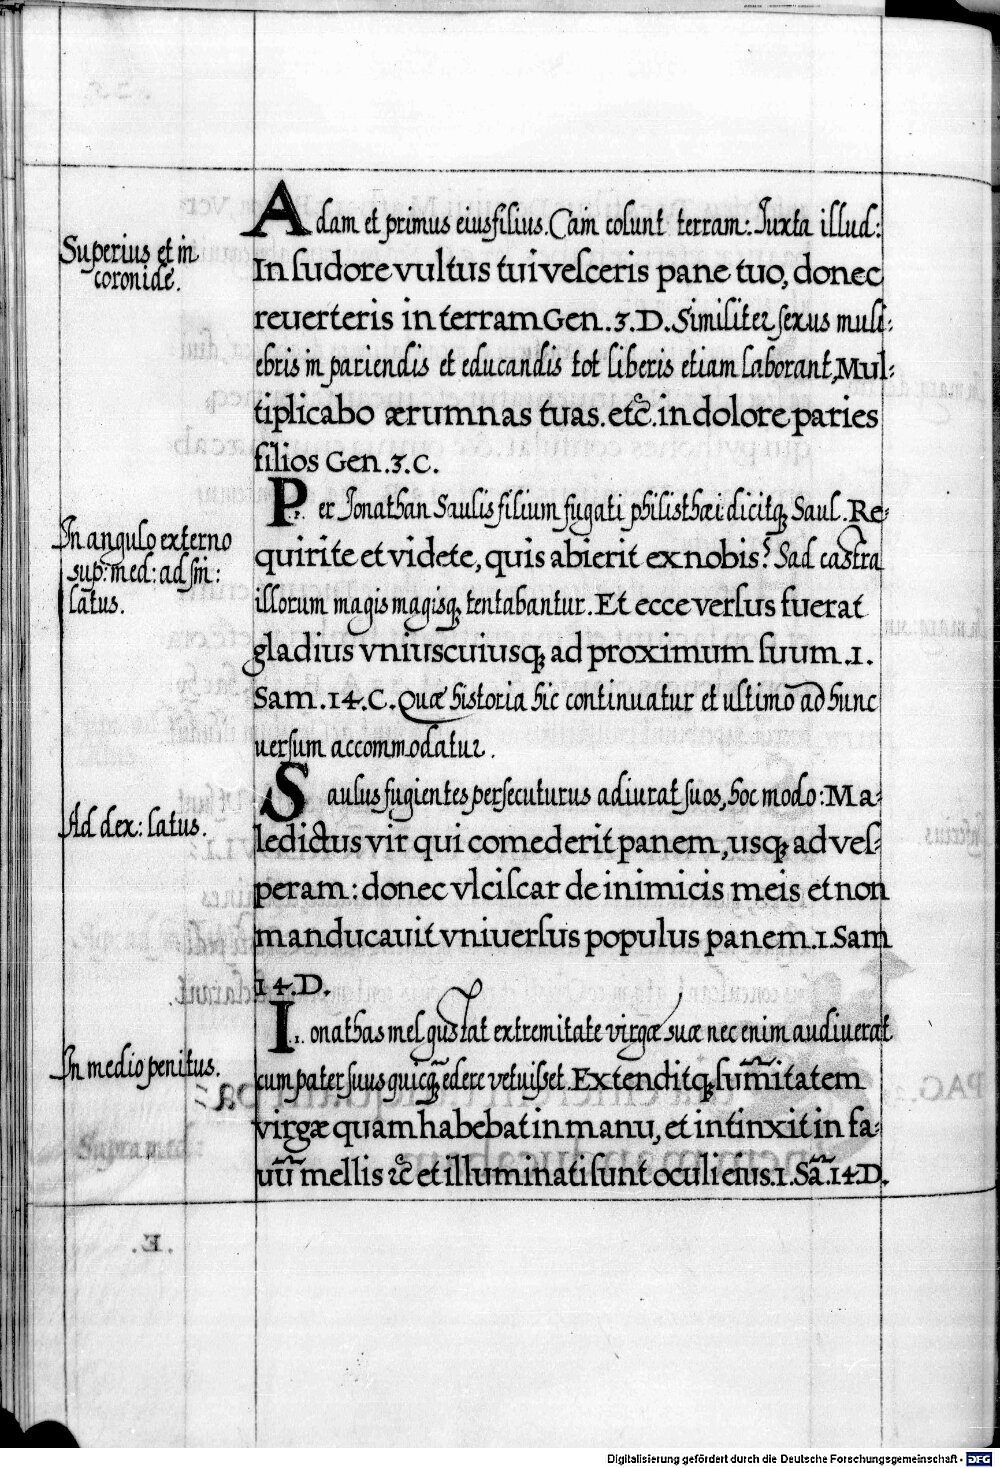 Adam et primus eius filius. Cain colunt terram: Juxta illud:
Superius et in
coronide.
In sudore vultus tui vesceris pane tuo, donec
reuerteris in terram Gen. 3. D. Similiter sexus muli:
ebris in pariendis et educandis tot liberis etiam laborant, Mul-
tiplicabo ærumnas tuas. etc. in dolore paries
filios Gen. 3. C.
Per Jonathan Saulis filium fugati philisthæi dicitq; Saul. Re-
In angulo externo
sup: med: ad sin:
latus.
quirite et videte, quis abierit ex nobis? Sad castra
illorum magis magisq; tentabantur. Et ecce versus fuerat
gladius vniuscuiusq; ad proximum suum. 1.
Sam. 14. C. Quæ historia hic continuatur et ultimo ad hunc
uersum accommodatur.
Saulus fugientes persecuturus adiurat suos, hoc modo: Ma-
Ad dex: latus.
ledictus vir qui comederit panem, usq; ad ves-
peram: donec vlciscar de inimicis meis et non
manducauit vniuersus populus panem. 1. Sam
14. D.
Ionathas mel gustat extremitate virgæ suæ nec enim audiuerat
In medio penitus.
cum pater suus quicq̃ edere vetuisset. Extenditq; sum̃itatem
virgæ quam habebat in manu, et intinxit in fa-
uũ mellis etc et illuminati sunt oculi eius. 1. Sã. 14. D.
Digitalisierung gefördert durch die Deutsche Forschungsgemeinschaft - DFG